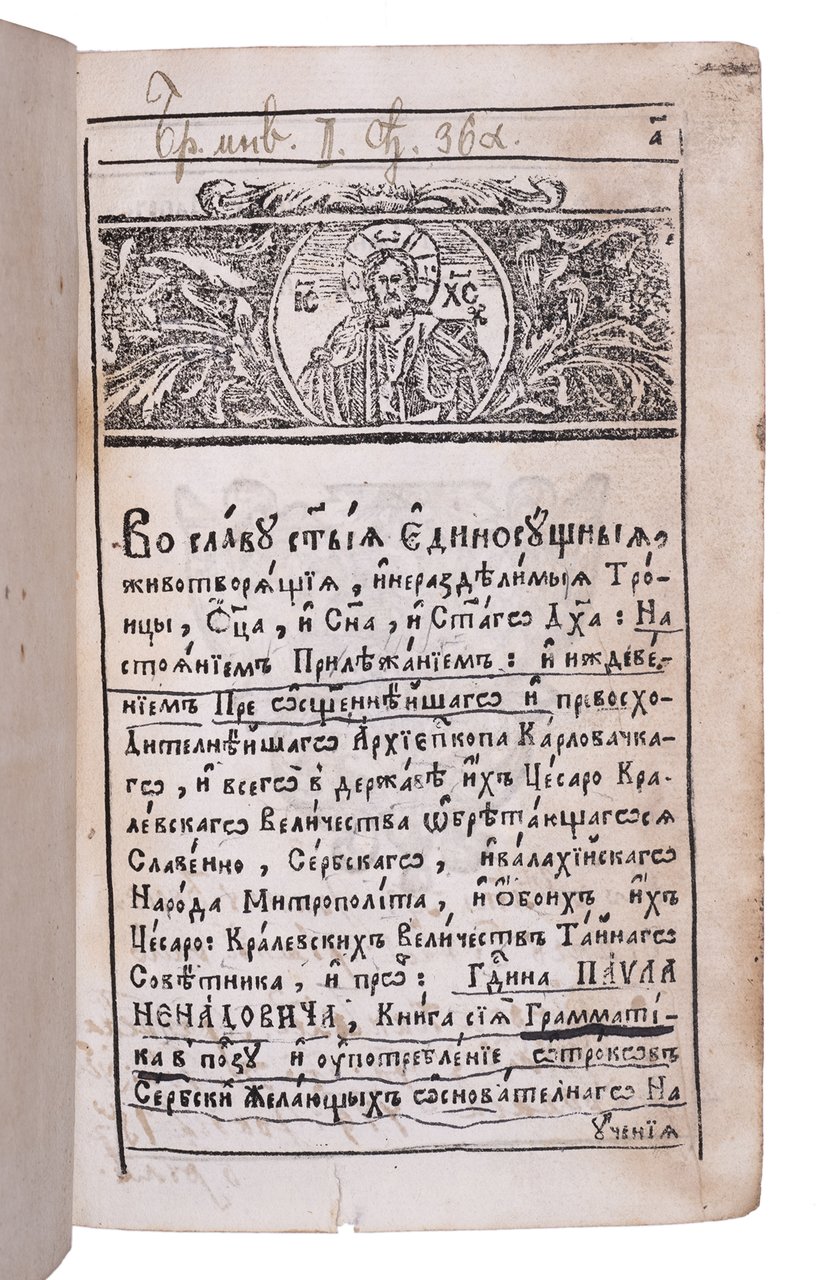 Бр. инв. II. 36а.
а҃
І҃С Х҃С
Во сла́вѹ ст҃ы́ѧ Є҆диносѹ́щныѧ
животворѧ́щїѧ, и҆нераздѣли́мыѧ Тро́-
ицы, Ѻ҆ц҃а, и҆ Сн҃а, и҆ Ст҃а́гѡ Дх҃а : На
стоѧ́нїемъ Прилѣжа́нїемъ : и҆ иждеве́-
нїемъ Пре ѡ҆сщ҃еннѣ́йшагѡ и҆ превосхо-
Дителнѣ́йшагѡ А҆рхїеп҃копа Ка́рловачка-
гѡ, и҆ всегѡ̀ в̾ держа́вѣ и҆́хъ Це́саро Кра-
ле́вскагѡ Вели́чества ѡ҆брѣта́ющагѡсѧ
Славе́нно, Се́рбскагѡ, и҆вала́хїйскагѡ
Наро́да Митрополі́та, и҆ ѻ҆бои́хъ и҆́хъ
Це́саро: Кра́левскихъ Вели́чествъ Та́йнагѡ
Совѣ́тника, и҆ прѡ́ч : Гд҇и́на ПА́VЛА
НЕНА́ДОВИЧА, Кни́га сїѧ̀ Грамматі́-
ка в̾ по́лзѹ и҆ ᲂу҆потребле́нїе ѻ҆́трокѡвъ
Се́рбски Жела́ющыхъ ѡ҆снова́телнагѡ На
ѹче́нїѧ